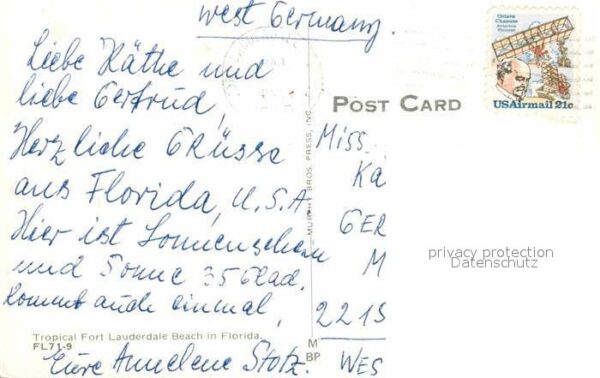 West Germany.
Liebe Käthe und
liebe Gertrud,
Herzliche GRüsse
aus Florida, U.S.A
Hier ist Sonnenschein
und Sonne 35 Grad.
Kommt auch einmal,
Eure Annelene Stolz.
Tropical Fort Lauderdale Beach in Florida.
FL71-9
MURPHY BROS. PRESS, INC.
M
BP
POST CARD
Octave
Chanute
Aviation
Pioneer
USAirmail 21c
Miss.
Kä
GER
M
2215
WES
privacy protection
Datenschutz